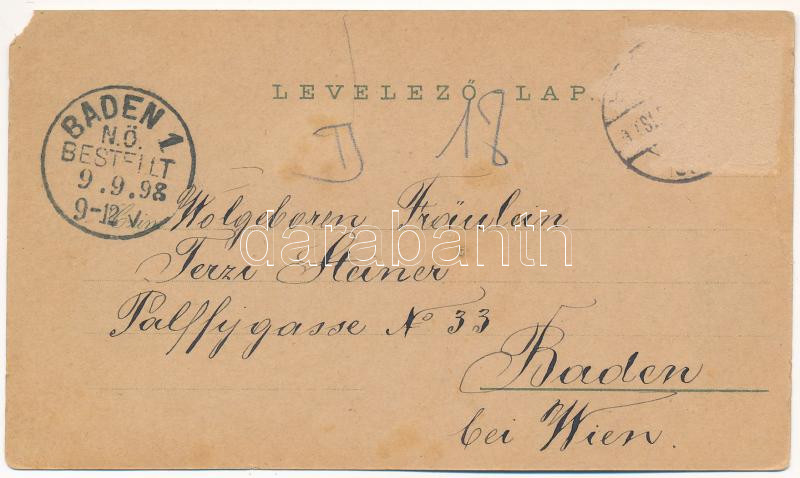 LEVELEZŐ LAP.
BADEN 1
N.Ö.
BESTELLT
9.9.98
9-12 V
D 18
Wolgeboren Fräulein
Terzi Steiner
Palffygasse No 33
Baden
bei Wien.
darabanth